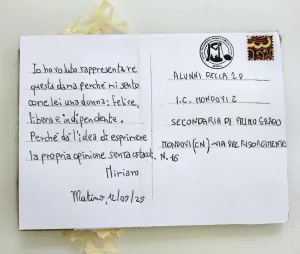 Io ho voluto rappresentare
questa dama perché mi sento
come lei una donna: felice,
libera e indipendente.
Perché dà l'idea di esprimere
la propria opinione senza
Miriam
Matino, 12/03/25
ALUNNI DELLA 2D
I.C. MONDOVÌ 2
SECONDARIA DI PRIMO GRADO
MONDOVÌ (CN) - VIA DEL RISORGIMENTO
N. 16